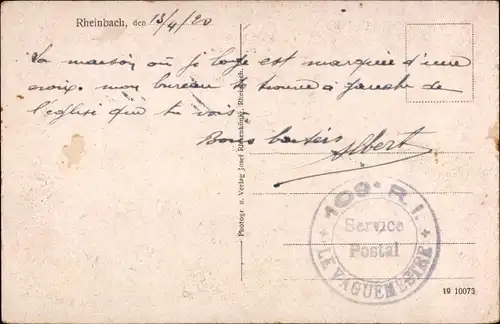 Rheinbach, den 13/4/20
La maison où je loge est marquée d'une
croix. mon bureau se trouve à gauche de
l'église que tu vois.
Bons baisers
Albert
Photogr. u. Verlag Josef Rheinbach.
109e R.I.
Service
Postal
LE VAGUEMESTRE
19 10073